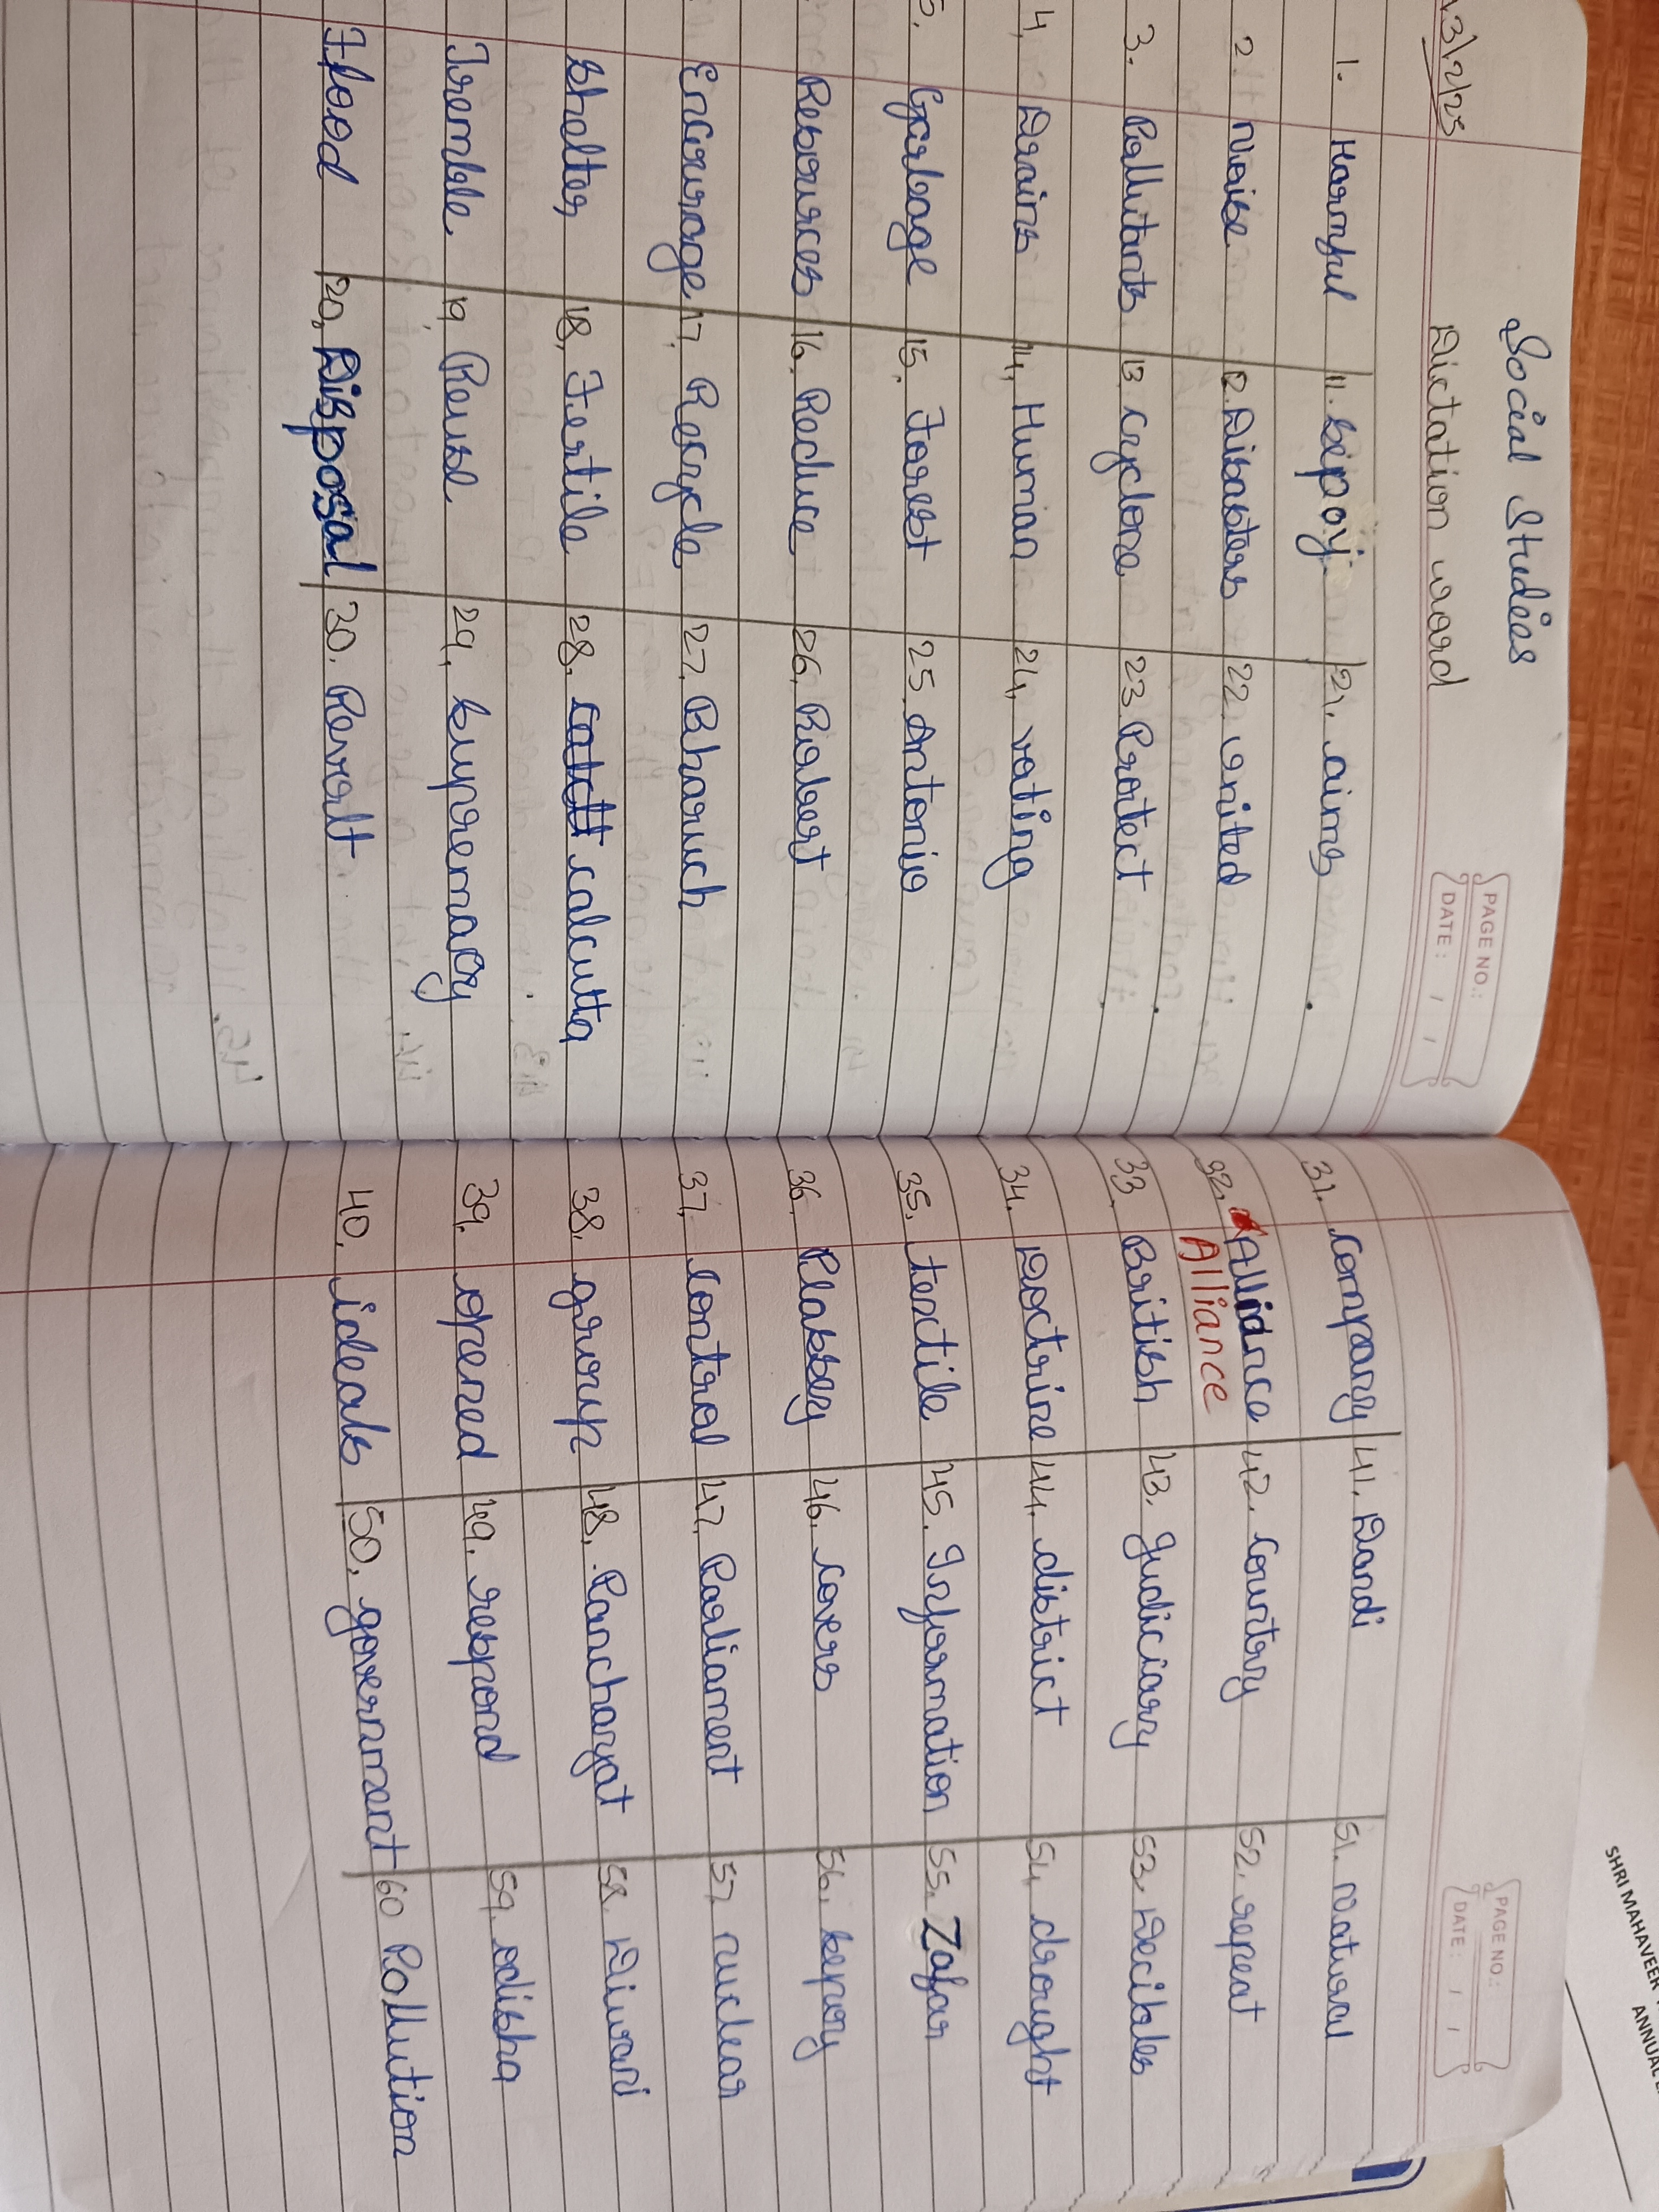 Social Studies
13/2/25 Dictation word
PAGE NO.:
DATE: / /
1. Harmful 11. Sepoy 21. aims
2. Noise 12. Disasters 22. United
3. Pollutants 13. cyclone 23. Protect
4. Drains 14. Human 24. voting
5. Garbage 15. Forest 25. Antonio
Resources 16. Reduce 26. Robert
Encourage 17. Recycle 27. Bharuch
Shelter 18. Fertile 28. calcutta
Tremble 19. Reuse 29. Supremacy
Flood 20. Disposal 30. Revolt
PAGE NO.:
DATE: / /
31. Company 41. Dandi 51. Natural
32. Alliance 42. Country 52. repeat
Alliance
33. British 43. Judiciary 53. Decibles
34. Doctrine 44. district 54. drought
35. textile 45. Information 55. Zafar
36. Plassey 46. Covers 56. Sepoy
37. Control 47. Parliament 57. nuclear
38. group 48. Panchayat 58. Diwani
39. opened 49. respond 59. odisha
40. ideals 50. government 60 Pollution
SHRI MAHAVEER